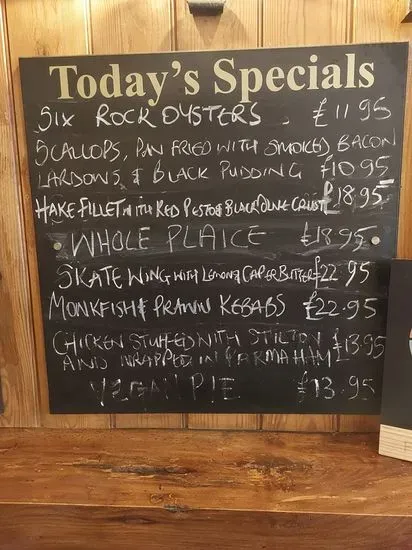 Today's Specials
SIX ROCK OYSTERS. £11.95
SCALLOPS, PAN FRIED WITH SMOKED BACON
LARDONS & BLACK PUDDING £10.95
HAKE FILLET WITH RED PESTO & BLACK OLIVE CRUST £18.95
WHOLE PLAICE £18.95
SKATE WING WITH LEMON & CAPER BUTTER £22.95
MONKFISH & PRAWN KEBABS £22.95
CHICKEN STUFFED WITH STILTON £13.95
AND WRAPPED IN PARMAHAM
VEGAN PIE £13.95